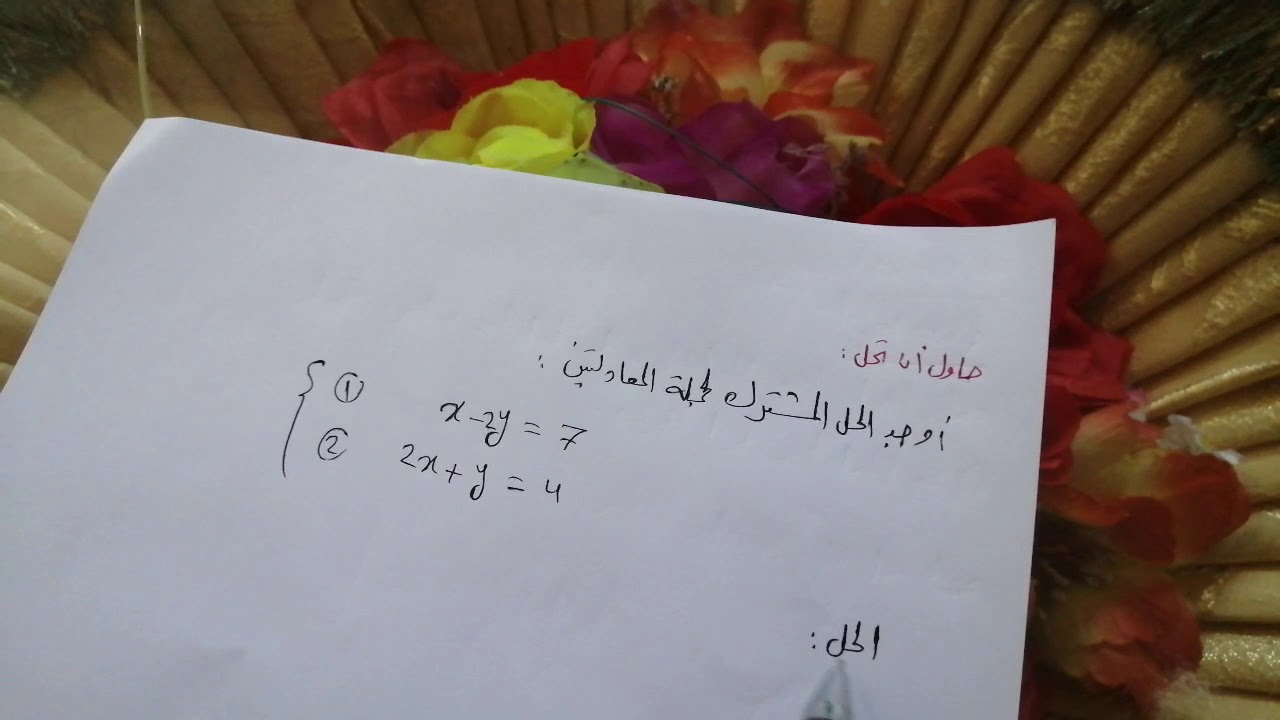 حاول أن تحل :
أوجد الحل المشترك لجملة المعادلتين :
① x - 2y = 7
② 2x + y = 4
الحل :